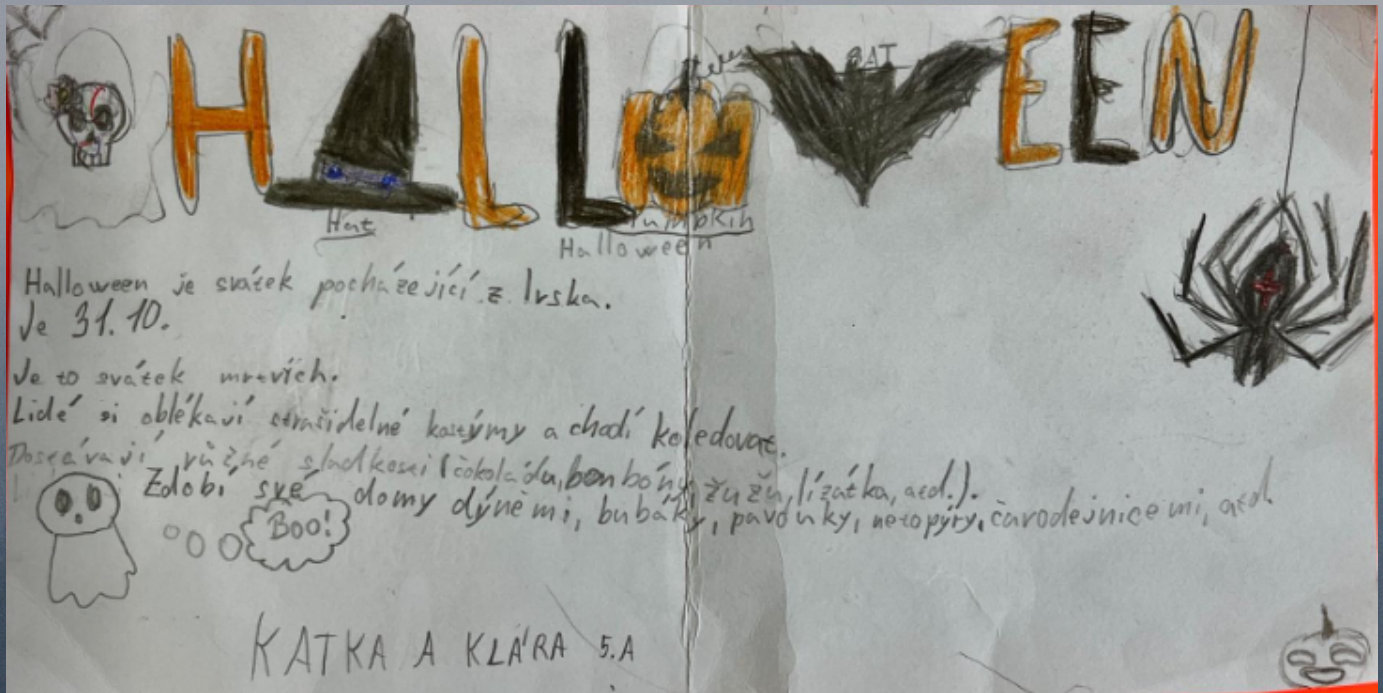 HALLOWEEN
BAT
Hat
Pumpkin
Halloween
Halloween je svátek pocházející z Irska.
Je 31. 10.
Je to svátek mrtvích.
Lidé si oblékají strašidelné kostýmy a chodí koledovat.
Dostávají různé sladkosti (čokoládu, bonbóny, žužu, lízátka, atd.).
Zdobí své domy dýněmi, bubáky, pavouky, netopýry, čarodejnicemi, atd.
Boo!
KATKA A KLÁRA 5.A